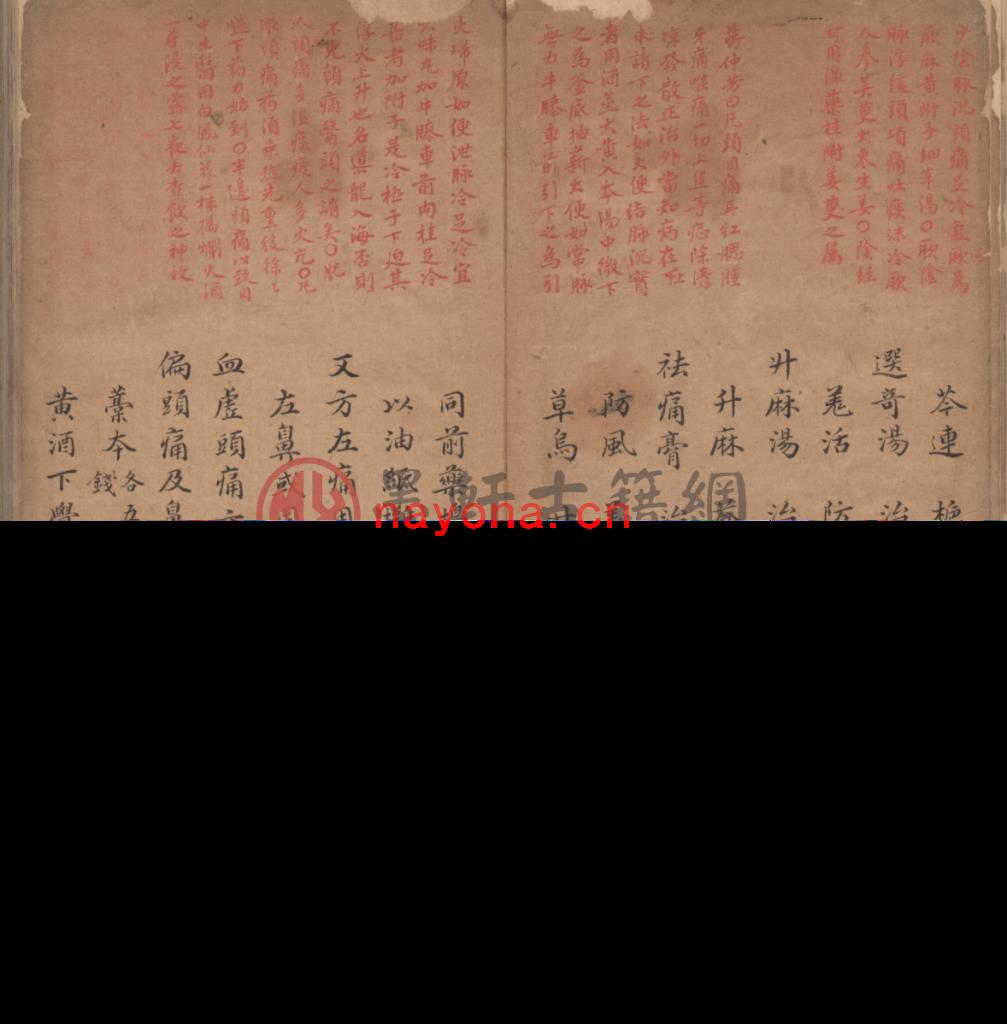 少陰脉沉頭痛足冷氣厥為
厥麻黄附子細辛湯〇厥陰
脉浮緩頭項痛吐痰沫冷厥
人參吳萸大棗生姜〇陰経
可用温藥桂附姜萸之属
蔣仲芳曰凡頭目痛耳紅腮腫
牙痛喉痛一切上焦等症除清
涼發散正治外當知病在
求諸下之法如大便结脉沉實
者用酒蒸大黄入本湯中微下
之為釜底抽薪大便如常脉
無力牛膝車前引下之為引
火歸原如便泄脉冷足冷宜
六味丸加牛膝車前肉桂足冷
甚者加附子是冷極于下迫其
浮火上升也名導龍入海否則
不免頭痛醫頭之誚矣〇肥
人頭痛多湿痰瘦人多火亢〇凡
頭痛药酒
下药力始到〇半邊頭痛以致目
中生翳用白鳳仙花一株搗爛火酒
一斤浸之露七夜去查飲之神效
芩連
選奇湯 治
羗活 防
升麻湯 治
升麻
祛痛膏 治
防風
草烏
同前藥
以油紙
又方左痛用
左鼻或
血虛頭痛
偏頭痛及鼻
藁本各五錢
黄酒下
墨軒古籍網
nayona.cn